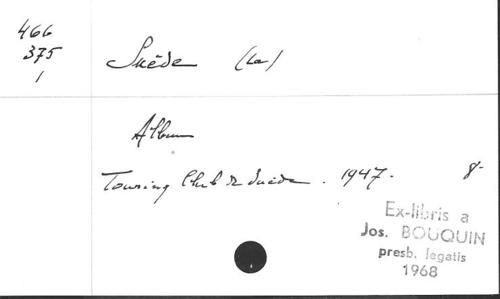 466
375
1
Suède (La)
Album
Touring Club de Suède . 1947. 8-
Ex-libris a
Jos. BOUQUIN
presb. legatis
1968